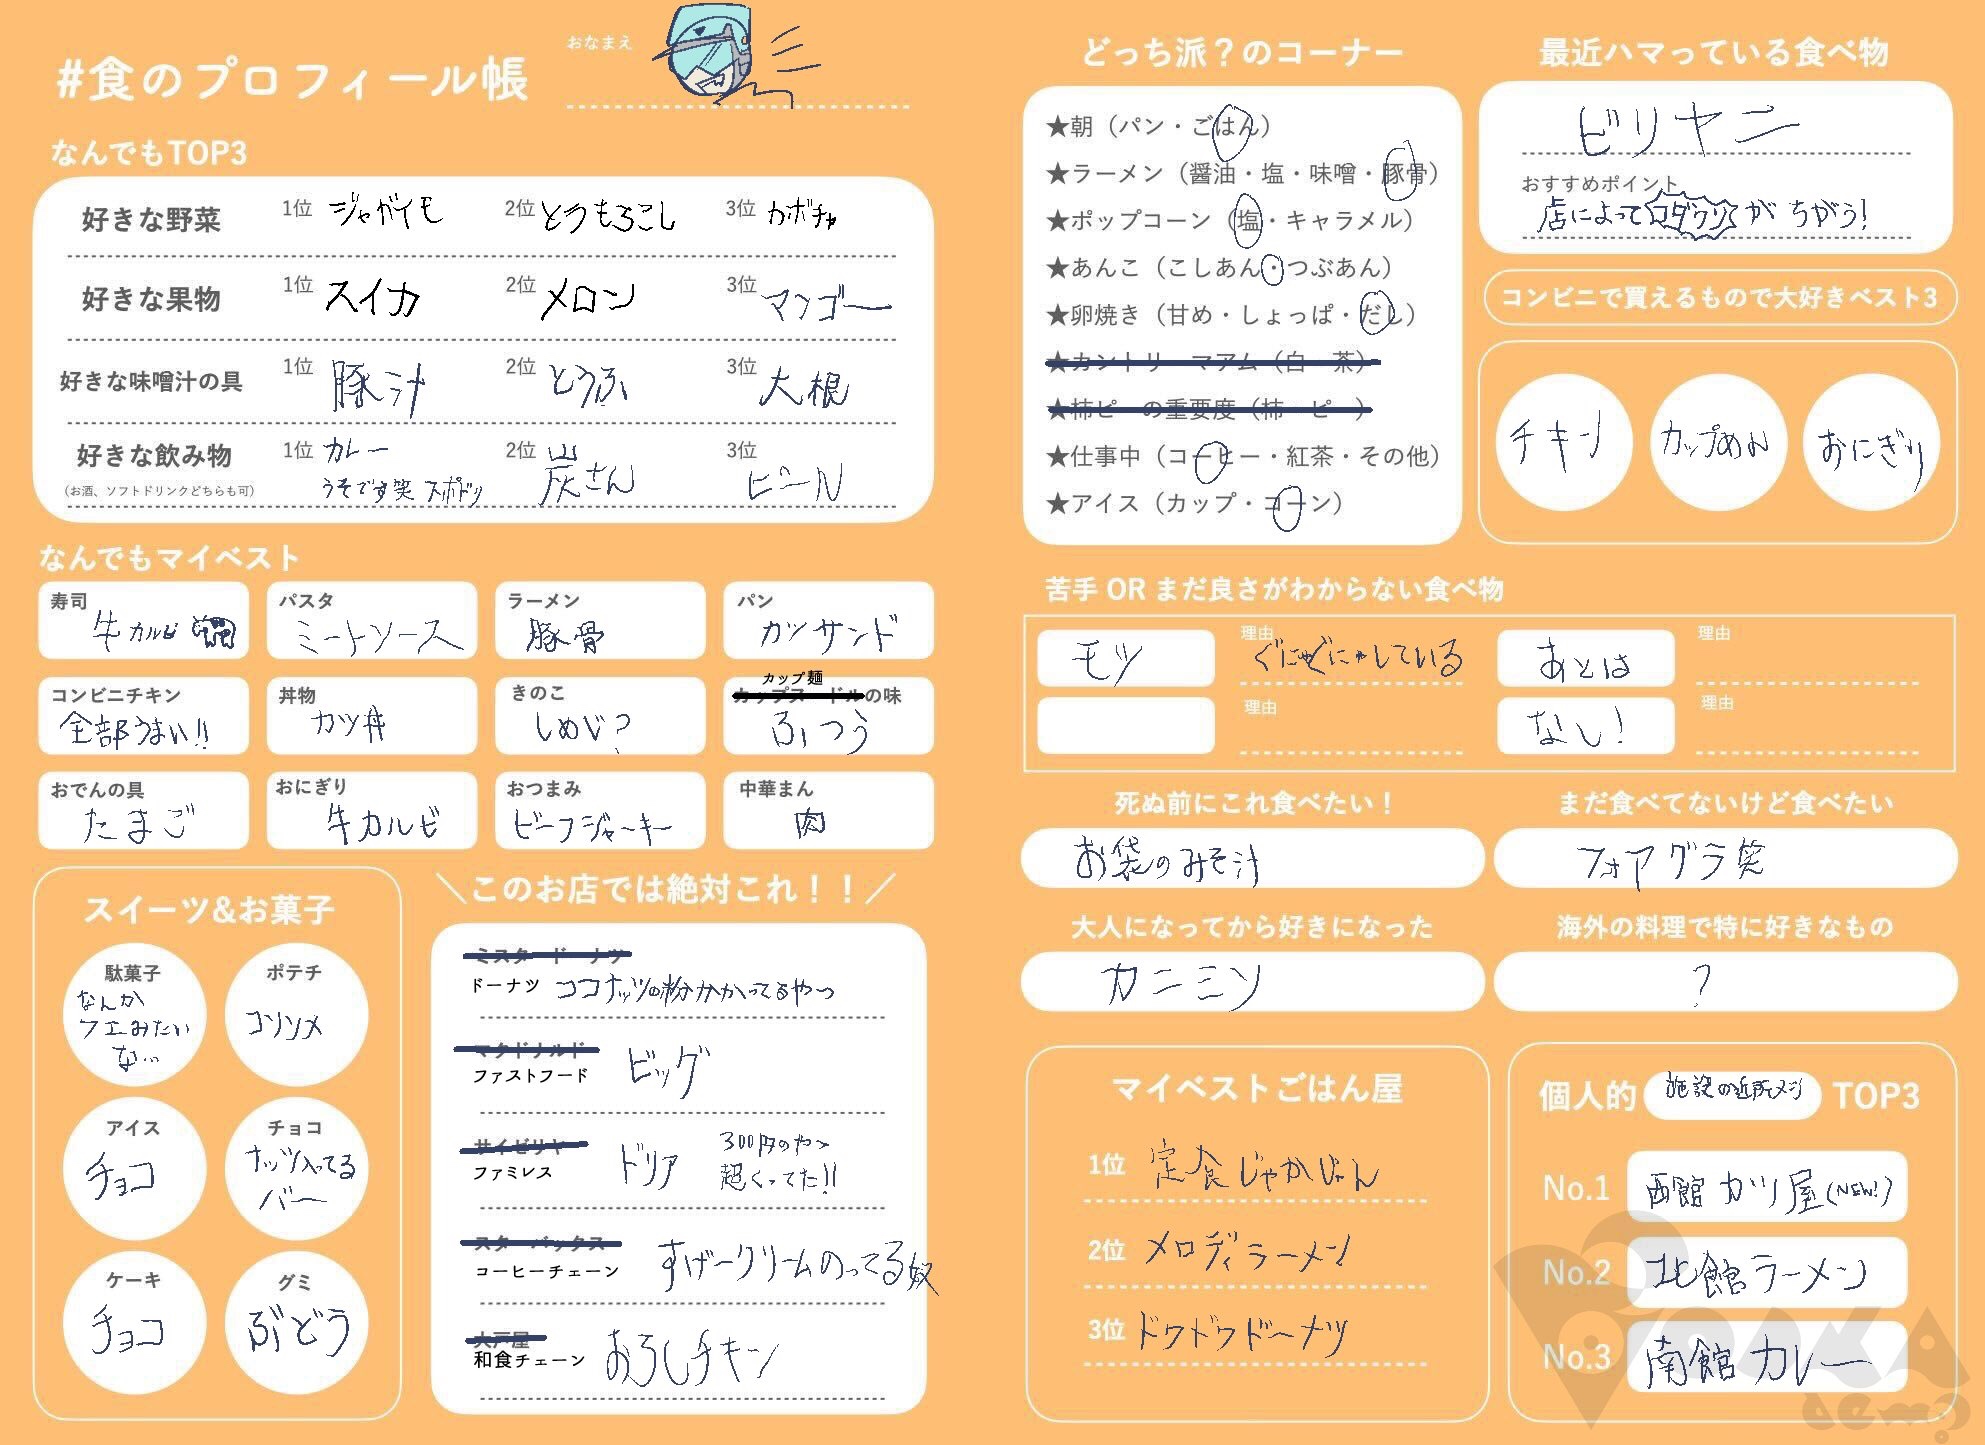 #食のプロフィール帳
おなまえ
なんでもTOP3
好きな野菜 1位 ジャガイモ 2位 とうもろこし 3位 カボチャ
好きな果物 1位 スイカ 2位 メロン 3位 マンゴー
好きな味噌汁の具 1位 豚汁 2位 とうふ 3位 大根
好きな飲み物 1位 カレー 2位 炭さん 3位 ビール
(お酒、ソフトドリンクどちらも可) うそです笑 スポドリ
なんでもマイベスト
寿司 牛カルビ
パスタ ミートソース
ラーメン 豚骨
パン カツサンド
コンビニチキン 全部うまい!!
丼物 カツ丼
きのこ しめじ?
カップ麺
カップヌードルの味 ふつう
おでんの具 たまご
おにぎり 牛カルビ
おつまみ ビーフジャーキー
中華まん 肉
スイーツ&お菓子
駄菓子
なんか
フエみたい
な…
ポテチ
コンソメ
アイス
チョコ
チョコ
ナッツ入ってる
バー
ケーキ
チョコ
グミ
ぶどう
＼このお店では絶対これ！！／
ミスタードーナツ
ドーナツ ココナッツの粉かかってるやつ
マクドナルド
ファストフード ビッグ
サイゼリヤ
ファミレス ドリア 300円のやつ
超くってた!!
スターバックス
コーヒーチェーン すげークリームのってる奴
大戸屋
和食チェーン おろしチキン
どっち派？のコーナー
★朝（パン・ごはん）
★ラーメン（醤油・塩・味噌・豚骨）
★ポップコーン（塩・キャラメル）
★あんこ（こしあん・つぶあん）
★卵焼き（甘め・しょっぱ・だし）
★カントリーマアム（白・茶）
★柿ピーの重要度（柿・ピー）
★仕事中（コーヒー・紅茶・その他）
★アイス（カップ・コーン）
最近ハマっている食べ物
ビリヤニ
おすすめポイント
店によってコダワリがちがう!
コンビニで買えるもので大好きベスト3
チキン
カップめん
おにぎり
苦手 OR まだ良さがわからない食べ物
モツ 理由 ぐにゃぐにゃしている
あとは 理由
理由
なし! 理由
死ぬ前にこれ食べたい！
お袋のみそ汁
まだ食べてないけど食べたい
フォアグラ笑
大人になってから好きになった
カニミソ
海外の料理で特に好きなもの
?
マイベストごはん屋
1位 定食じゃかじゃん
2位 メロディラーメン
3位 ドゥドゥドーナツ
個人的 施設の近所メシ TOP3
No.1 西館カツ屋(NEW!)
No.2 北館ラーメン
No.3 南館カレー